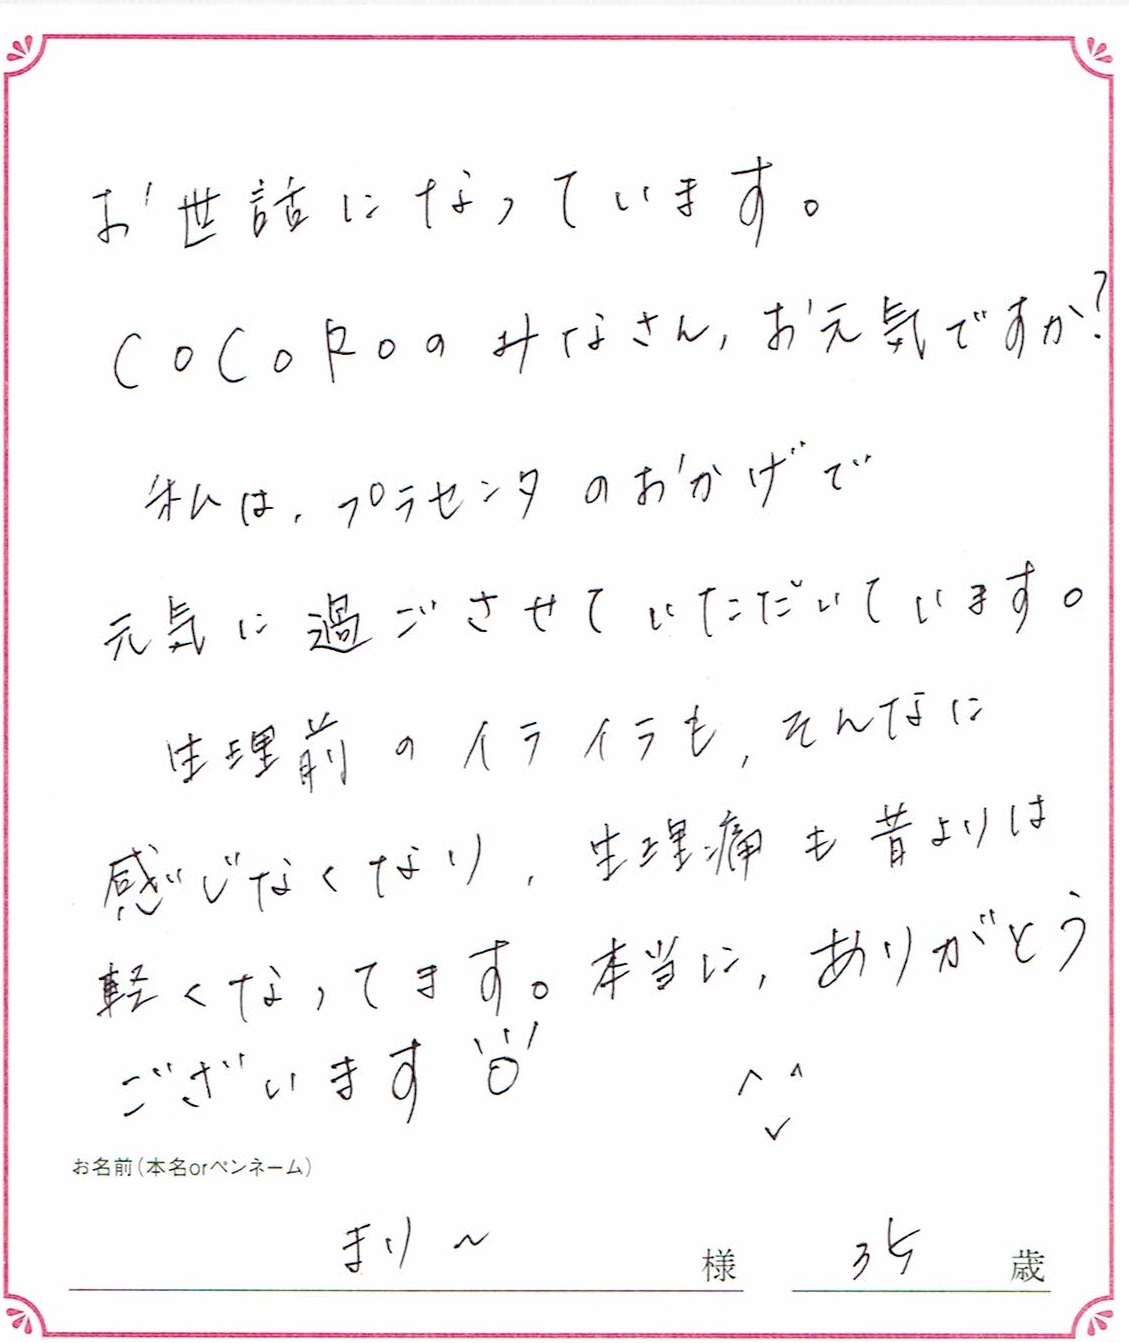 お世話になっています。
COCOROのみなさん,お元気ですか?
私は,プラセンタのおかげで
元気に過ごさせていただいています。
生理前のイライラも,そんなに
感じなくなり,生理痛も昔よりは
軽くなってます。本当に,ありがとう
ございます
お名前(本名orペンネーム)
まり~ 様 35 歳